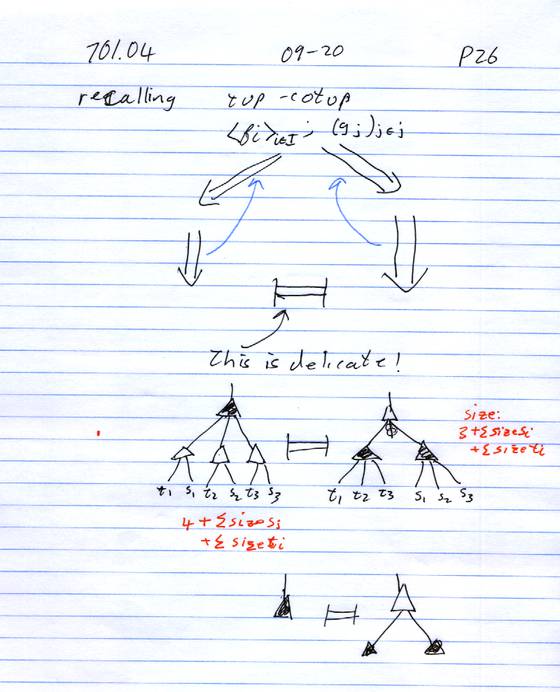 701.04 09-20 P26
recalling tup-cotup
<fi>i∈I ; (gj)j∈j
This is delicate!
size:
3+Σsizesi
+Σsizeti
t1 s1 t2 s2 t3 s3 t1 t2 t3 s1 s2 s3
4+Σsizesi
+Σsizeti